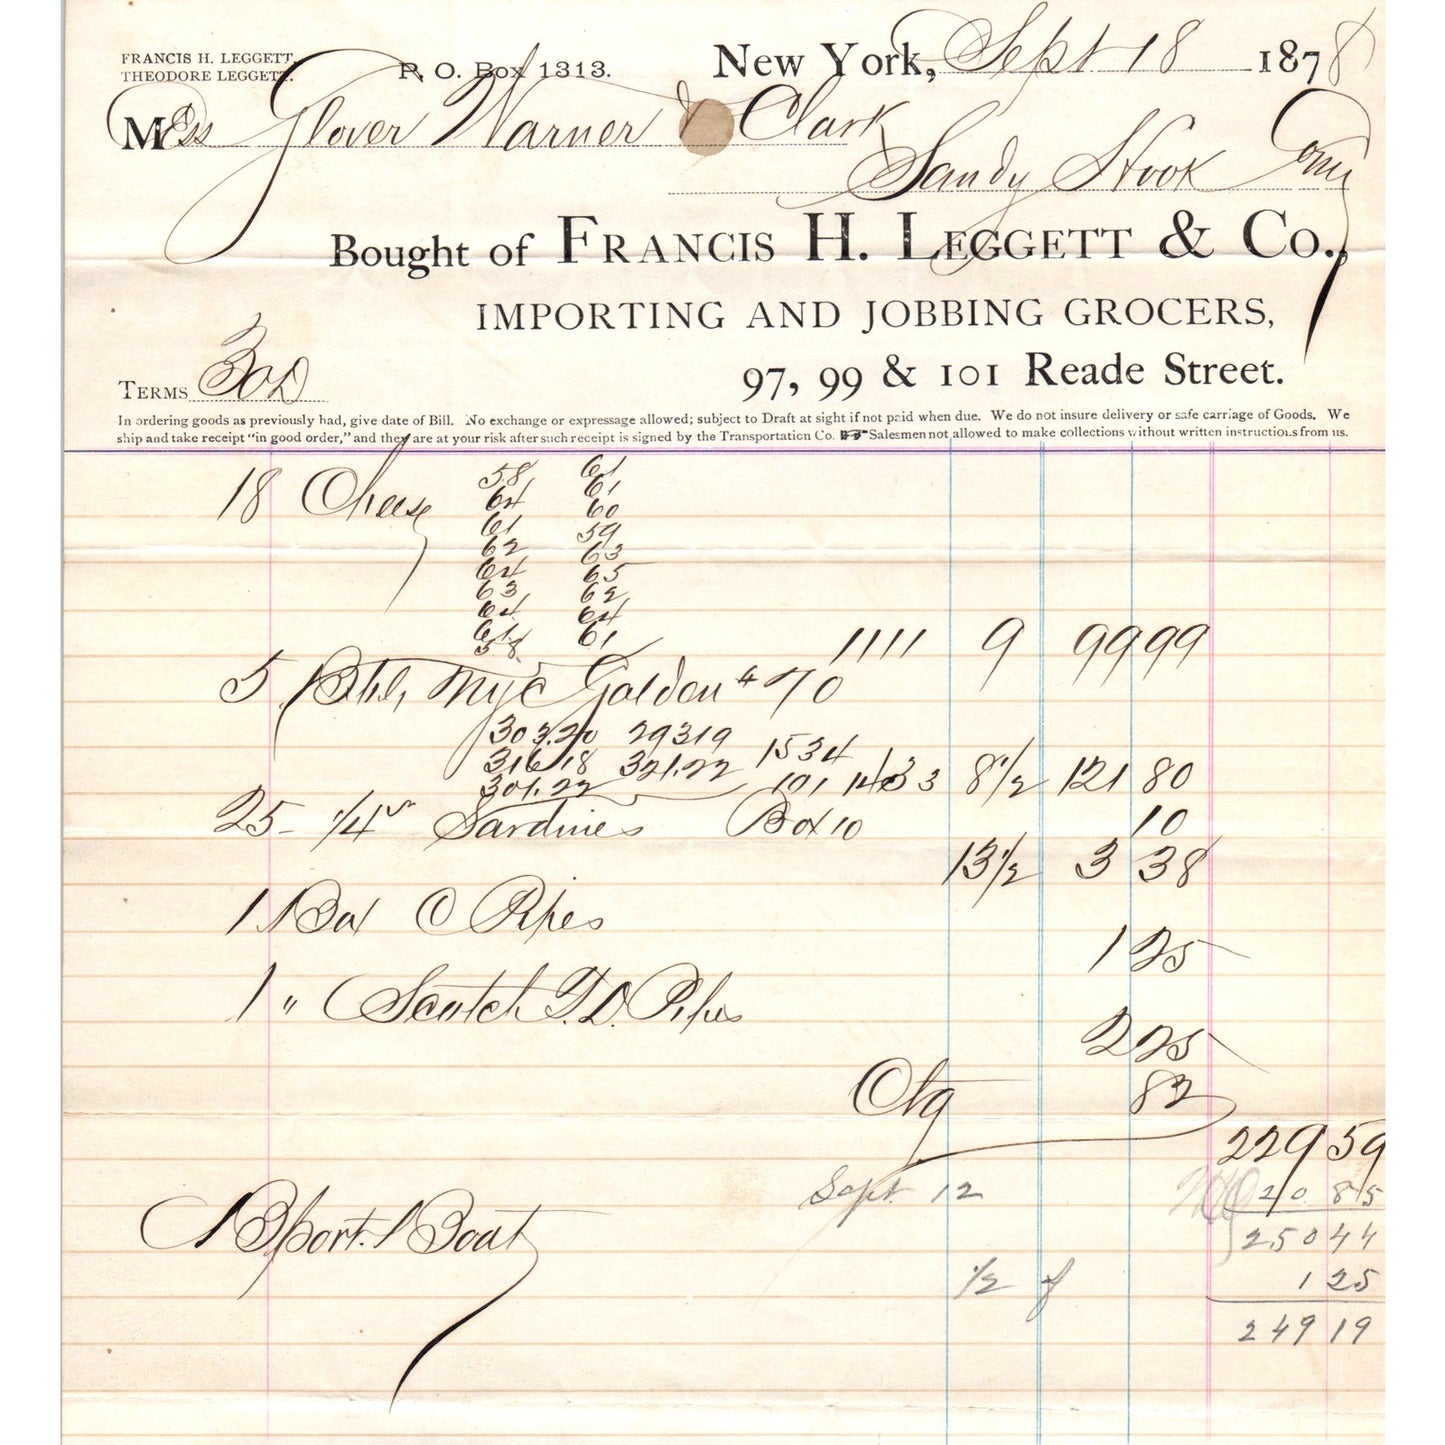 FRANCIS H. LEGGETT,
THEODORE LEGGETT.
P. O. Box 1313.
New York, Sept 18 1878
Mess Glover Warner & Clark
Sandy Hook Conn
Bought of FRANCIS H. LEGGETT & Co.,
IMPORTING AND JOBBING GROCERS,
97, 99 & 101 Reade Street.
TERMS 30 D
In ordering goods as previously had, give date of Bill. No exchange or expressage allowed; subject to Draft at sight if not paid when due. We do not insure delivery or safe carriage of Goods. We
ship and take receipt "in good order," and they are at your risk after such receipt is signed by the Transportation Co. Salesmen not allowed to make collections without written instructions from us.
18 Cheese 58 61
64 61
61 60
62 59
64 63
63 65
64 62
61 64
58 61 1111 9 99 99
5 Bbls NYC Golden # 70
303.20 29319
316 18 321.22 1534
301.22 101 1433 8 1/2 121 80
25 1/4s Sardines Box 10 10
13 1/2 3 38
1 Box O Pipes
1 25
1 " Scotch T.D. Pipes
2 25
Ctg 82
229 59
Sept. 12 20 85
Bport. Boat 250 44
1/2 of 1 25
249 19